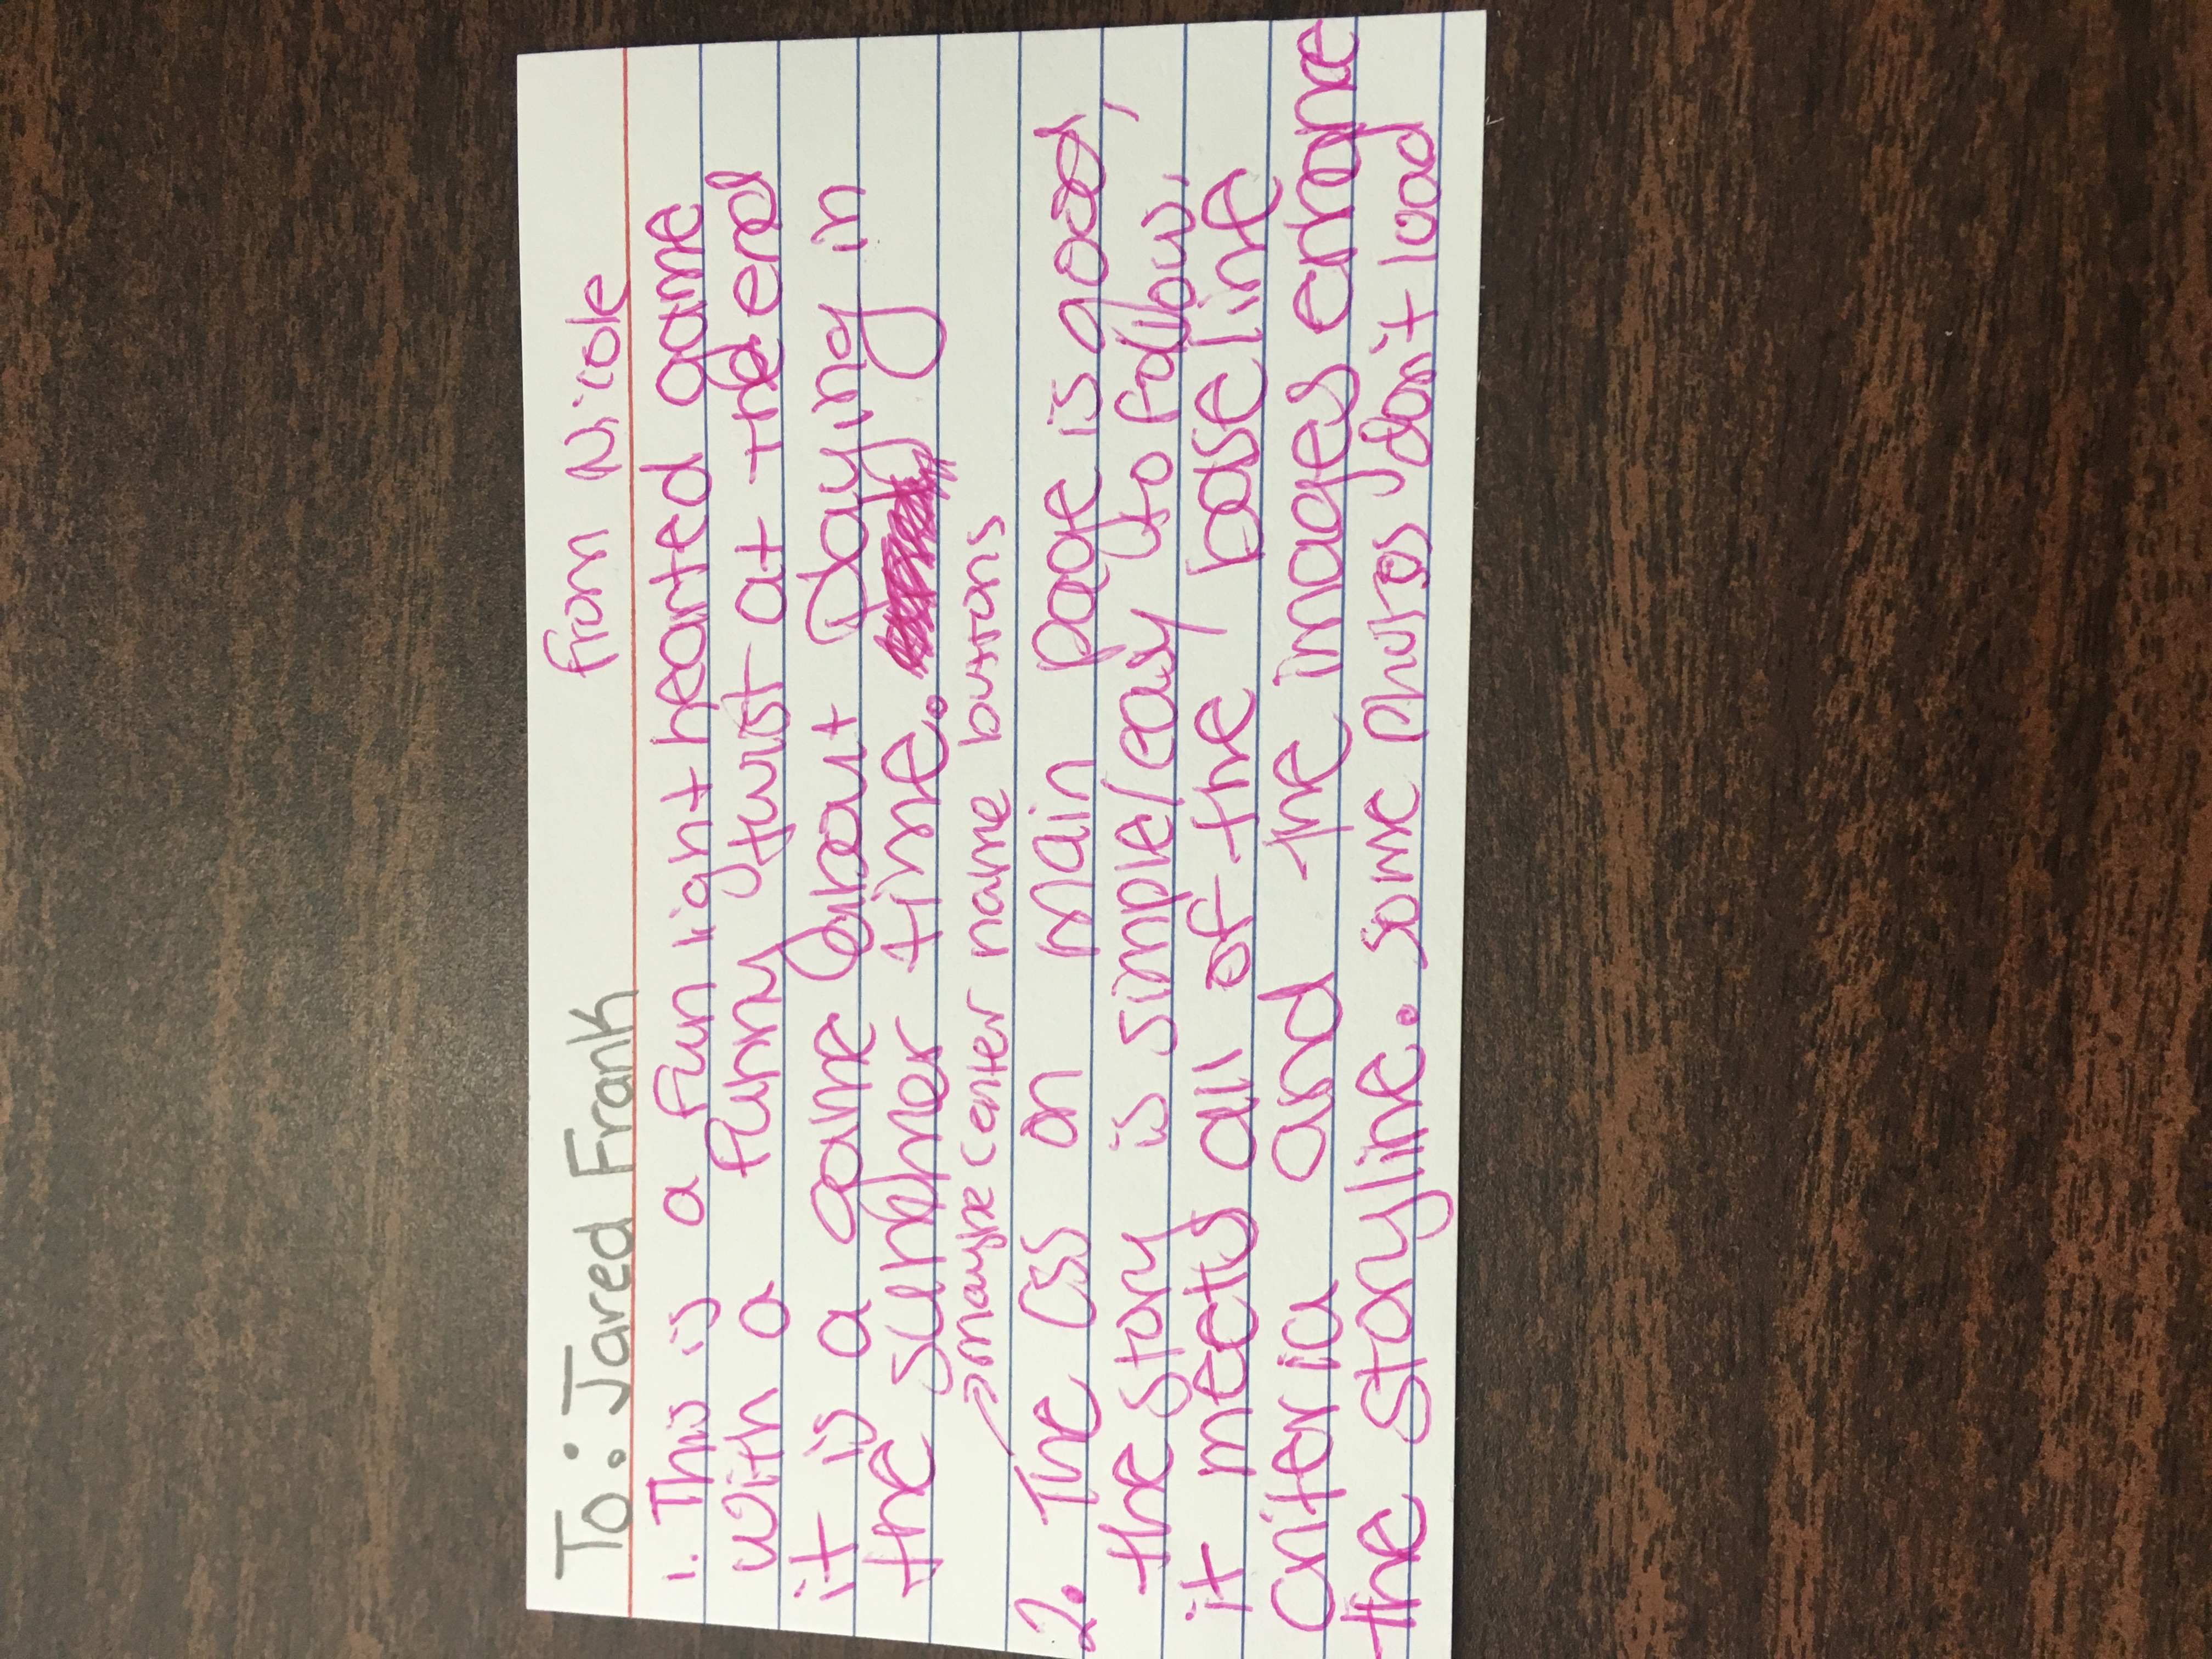 To: Jared Frank from Nicole
1. This is a fun light hearted game
with a funny twist at the end
it is a game about playing in
the summer time.
→ maybe center name buttons
2. The CSS on main page is good,
the story is simple/easy to follow,
it meets all of the baseline
criteria and the images enhance
the storyline. some photos don't load